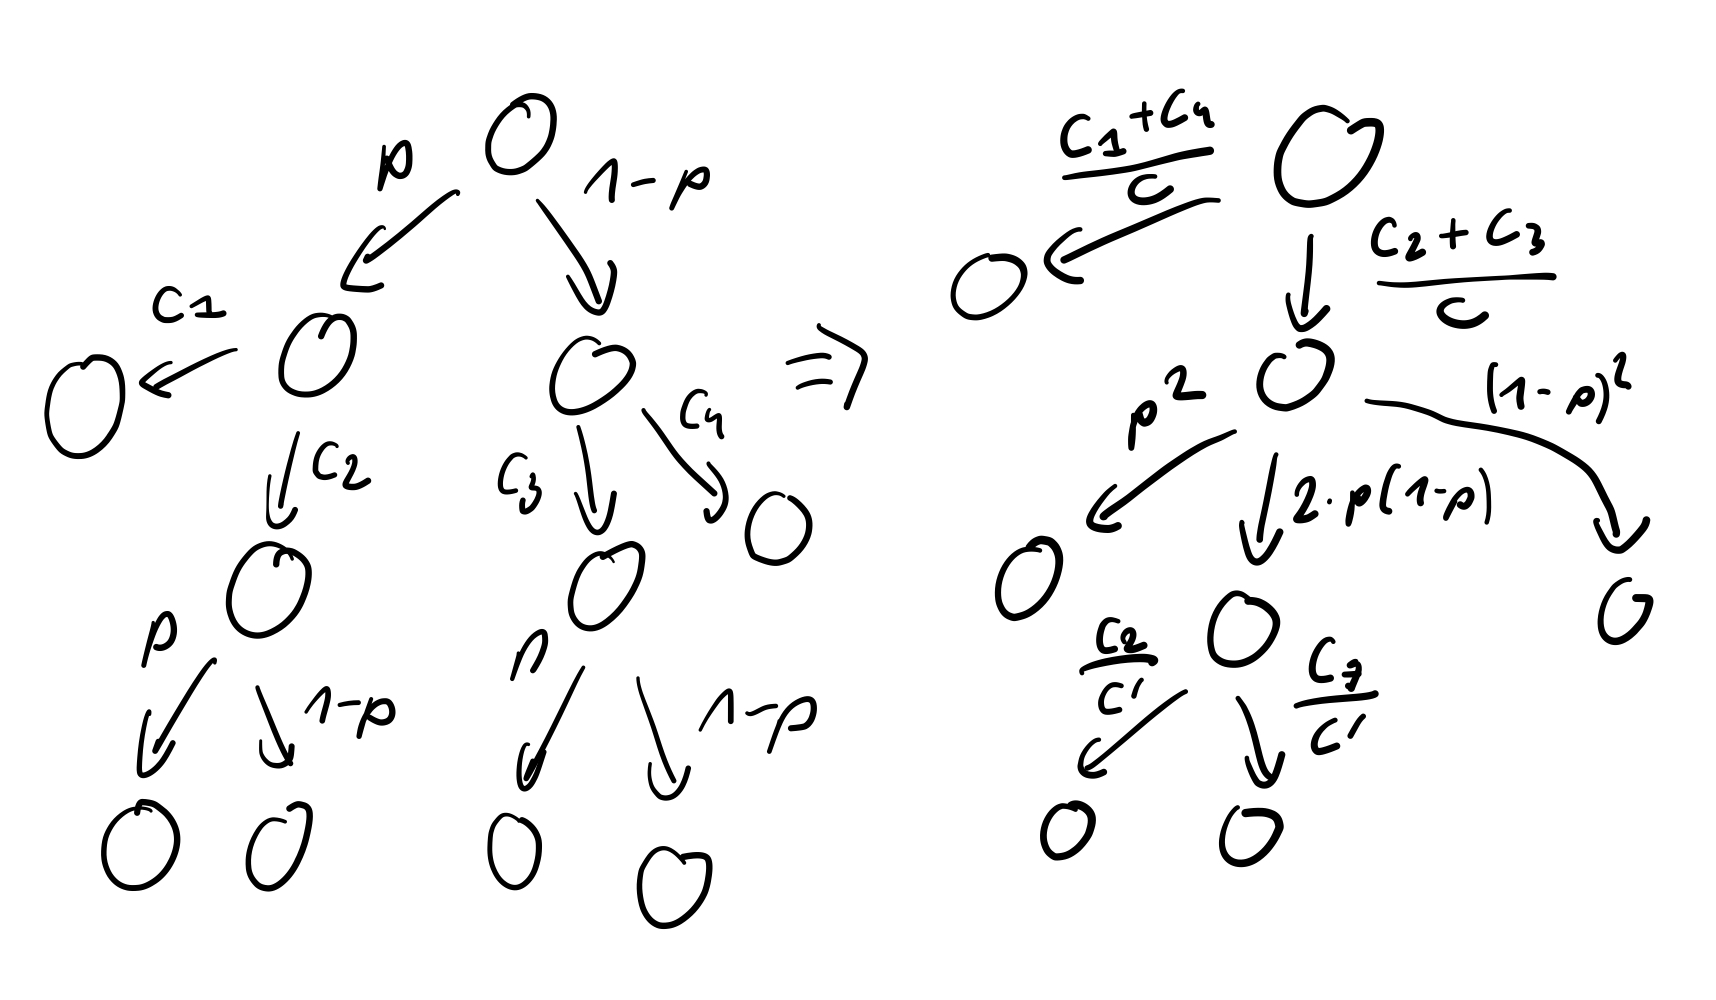 p
1-p
C1
C2
C3
C4
p
1-p
p
1-p
=>
C1+C4
C
C2+C3
C
p²
2·p(1-p)
(1-p)²
C2
C'
C7
C'